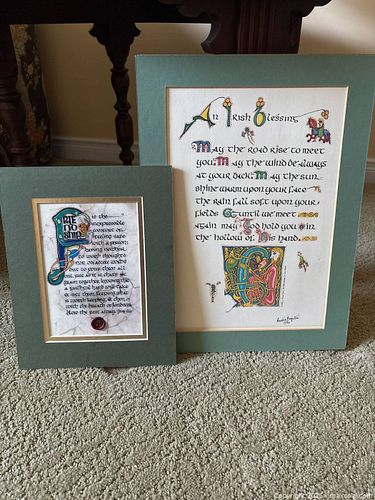 An Irish Blessing
May the road rise to meet
you. May the wind be always
at your back. May the sun
shine warm upon your face
the rain fall soft upon your
fields & until we meet
again may God hold you in
the hollow of His hand.
is the
inexpressible
comfort of
feeling safe
with a person
having neither
to weigh thoughts
nor measure words
but to pour them all
out, just as it is, chaff &
grain together, knowing that
a faithful hand will take
& sift them keeping what
is worth keeping, & then,
with the breath of kindness
blow the rest away.